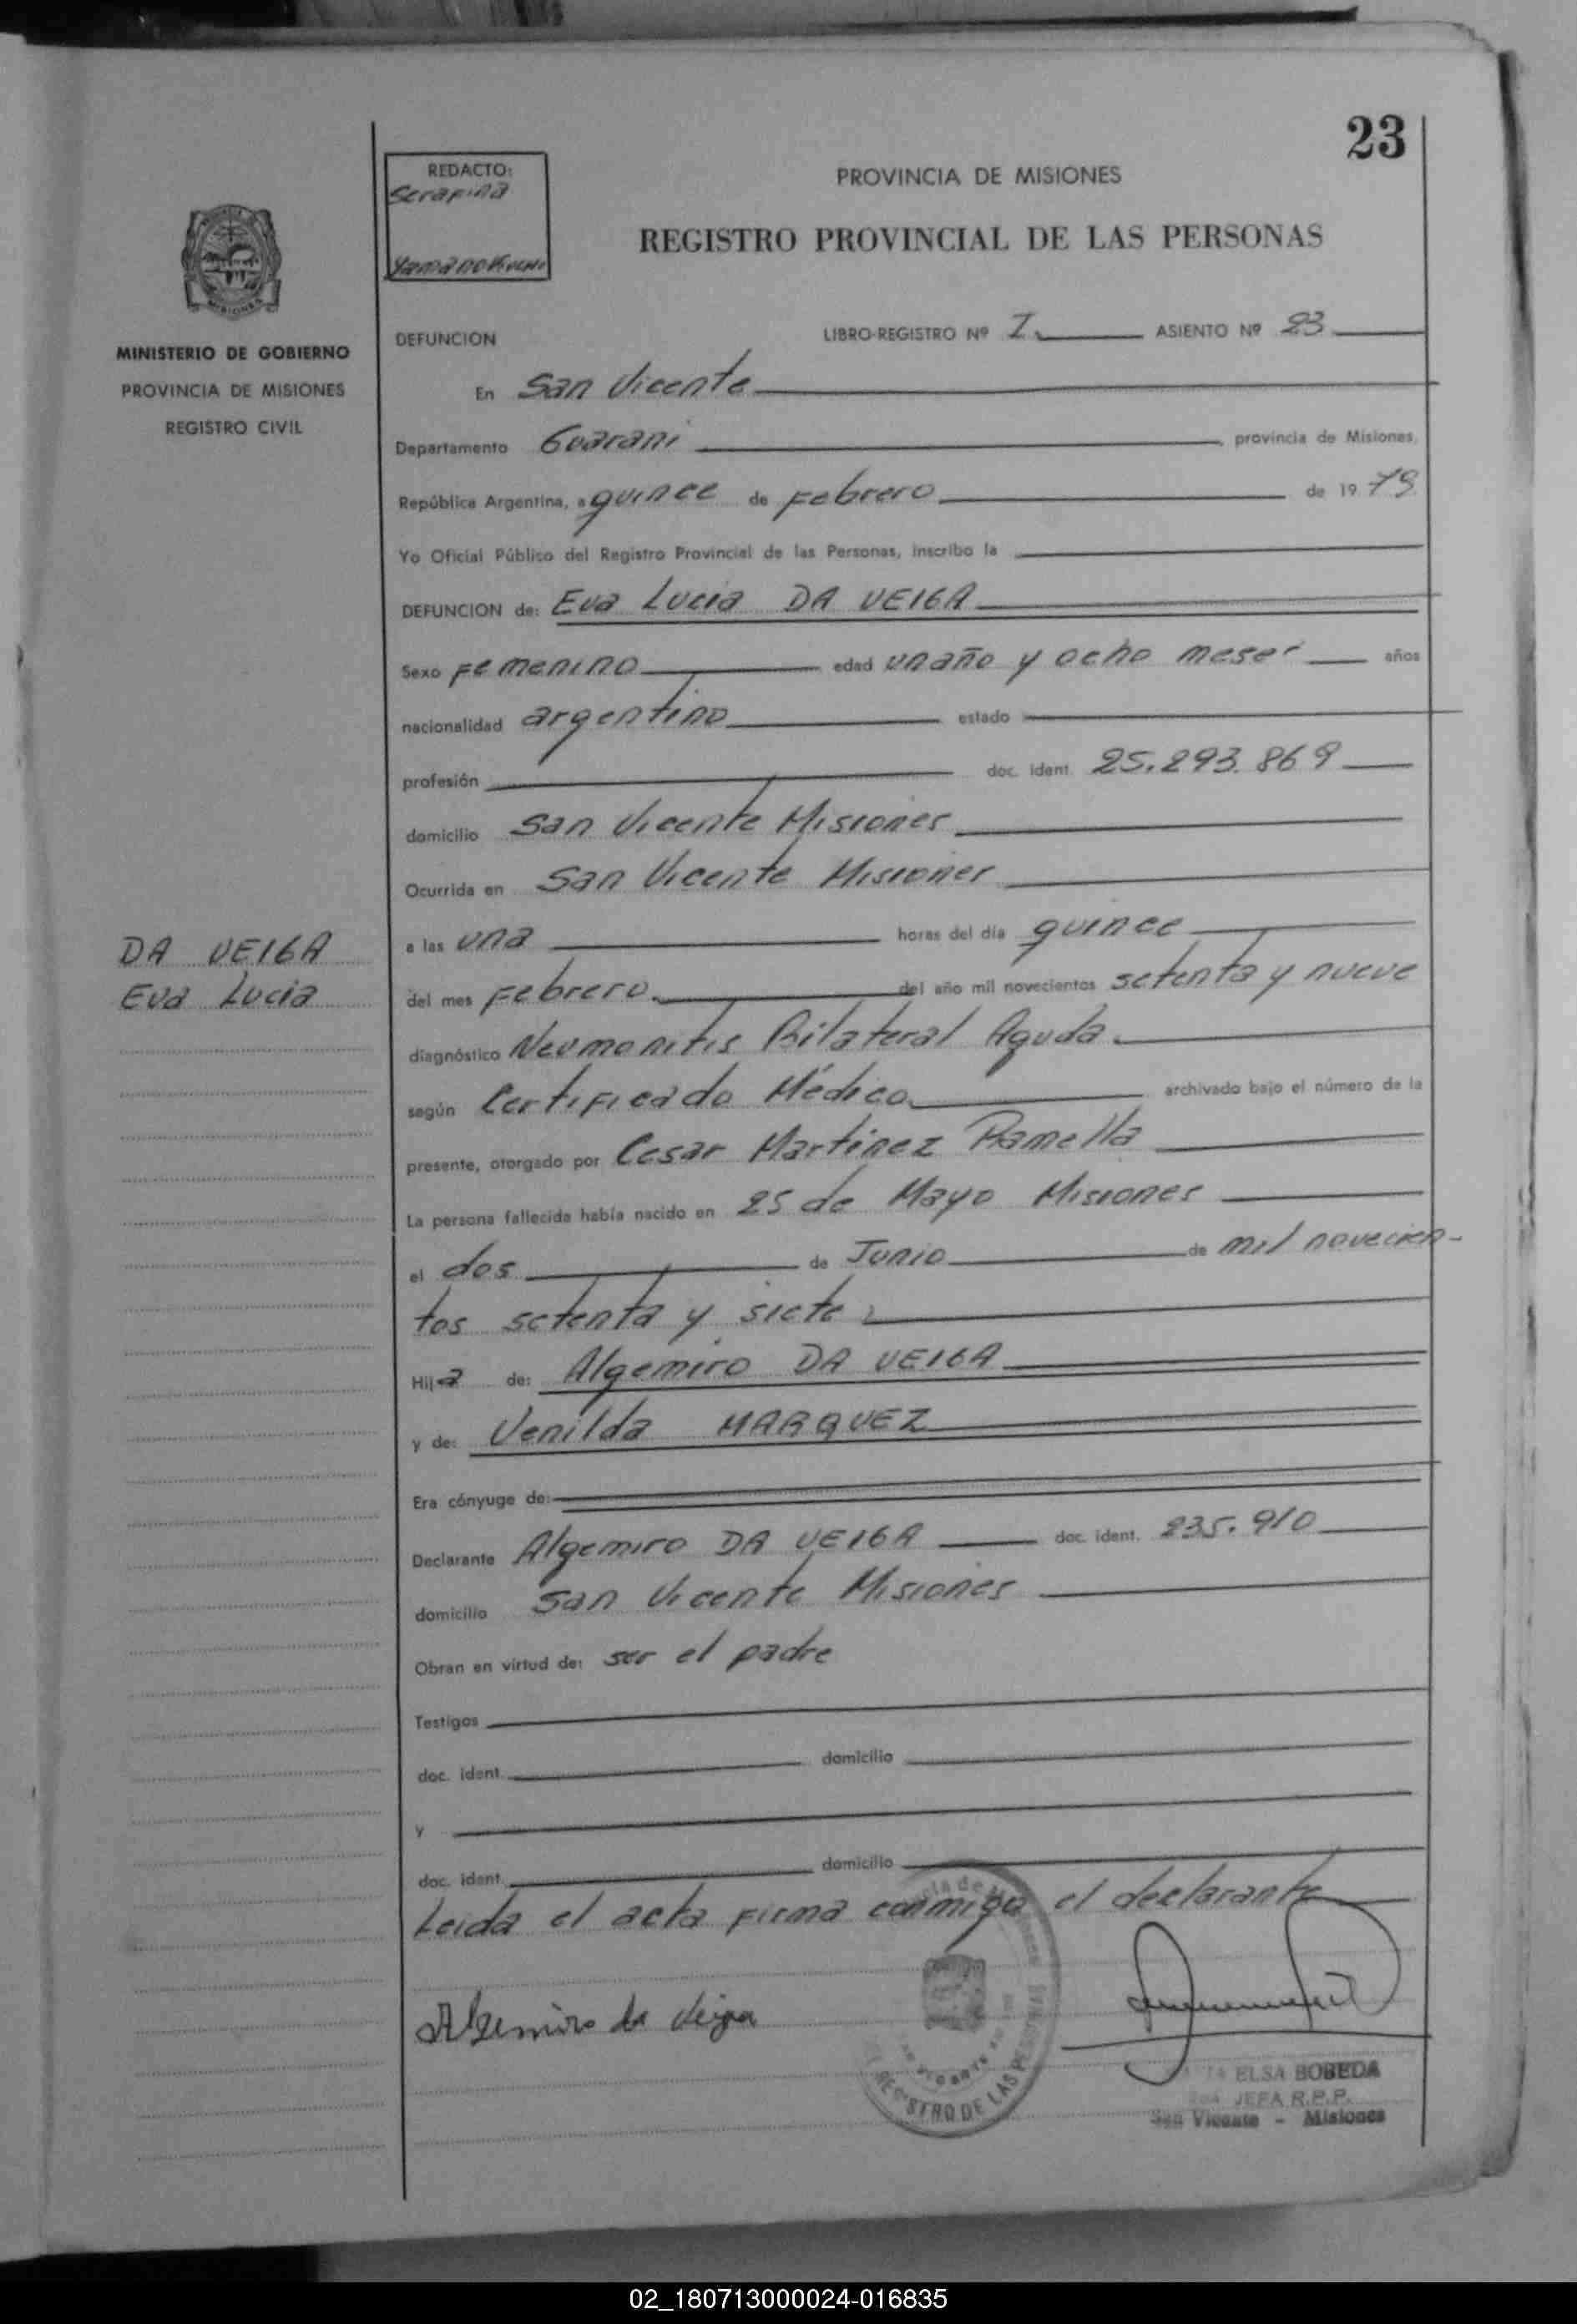 23
REDACTO:
Serafina
Yamanouchi
PROVINCIA DE MISIONES
REGISTRO PROVINCIAL DE LAS PERSONAS
MISIONES
MINISTERIO DE GOBIERNO
PROVINCIA DE MISIONES
REGISTRO CIVIL
DEFUNCION LIBRO-REGISTRO Nº I ASIENTO Nº 23
En San Vicente
Departamento Guarani provincia de Misiones,
República Argentina, a quince de Febrero de 19 79
Yo Oficial Público del Registro Provincial de las Personas, inscribo la
DEFUNCION de: Eva Lucia DA VEIGA
Sexo Femenino edad un año y ocho meses años
nacionalidad argentino estado
profesión doc. ident. 25.293.869
domicilio San Vicente Misiones
Ocurrida en San Vicente Misiones
a las una horas del día quince
DA VEIGA
Eva Lucia
del mes Febrero del año mil novecientos setenta y nueve
diagnóstico Neumonitis Bilateral Aguda
según Certificado Médico archivado bajo el número de la
presente, otorgado por Cesar Martinez Ramella
La persona fallecida había nacido en 25 de Mayo Misiones
el dos de Junio de mil novecien-
tos setenta y siete
Hija de: Algemiro DA VEIGA
y de: Venilda MARQUEZ
Era cónyuge de:
Declarante Algemiro DA VEIGA doc. ident. 235.910
domicilio San Vicente Misiones
Obran en virtud de: ser el padre
Testigos
doc. ident. domicilio
y
doc. ident. domicilio
Leida el acta firma conmigo el declarante
Algemiro da Veiga
REGISTRO DE LAS PERSONAS
ELSA BOBEDA
JEFA R.P.P.
San Vicente - Misiones
02_180713000024-016835